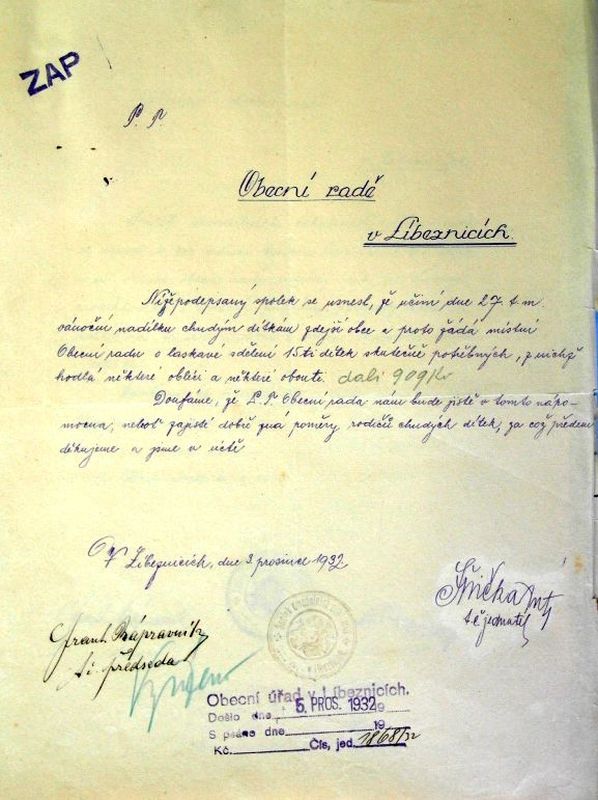 ZAP
P. T.
Obecní radě
v Líbeznicích.
Nížepodepsaný spolek se usnesl, že učiní dne 27 t. m.
vánoční nadílku chudým dítkám zdejší obce a proto žádá místní
Obecní radu o laskavé sdělení 15ti dítek skutečně potřebných, z nichž
hodlá některé obléci a některé obouti. dali 909 Kč
Doufáme, že P. T. Obecní rada nám bude jistě v tomto nápo-
mocna, neboť zajisté dobře zná poměry rodičů chudých dítek, za což předem
děkujeme a jsme v úctě
V Líbeznicích, dne 3. prosince 1932
t. č. jednatel
Frant. Nápravník
t. č. předseda
Vyřízeno
Obecní úřad v Líbeznicích.
Došlo dne 5. PROS. 1932 19
S psáno dne 19
Kč. Čís. jed. 1868/32